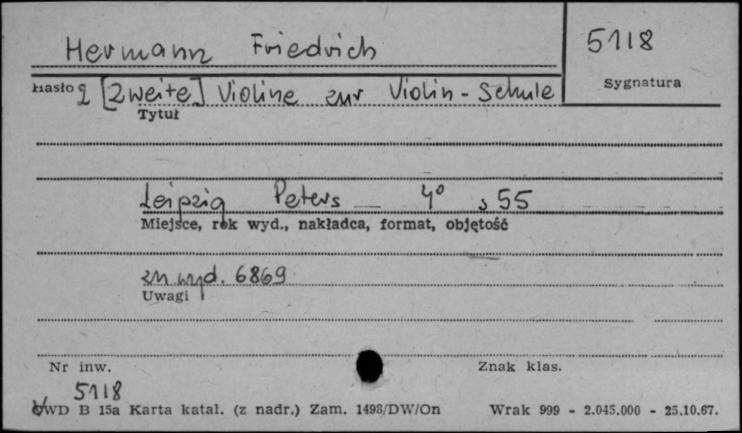 Hermann Friedrich
5118
Sygnatura
Hasło 2 [Zweite] Violine zur Violin - Schule
Tytuł
Leipzig Peters — 4° s 55
Miejsce, rok wyd., nakładca, format, objętość
zn wyd. 6869
Uwagi
Nr inw.
Znak klas.
5118
WD B 15a Karta katal. (z nadr.) Zam. 1493/DW/On Wrak 999 - 2.045.000 - 25.10.67.